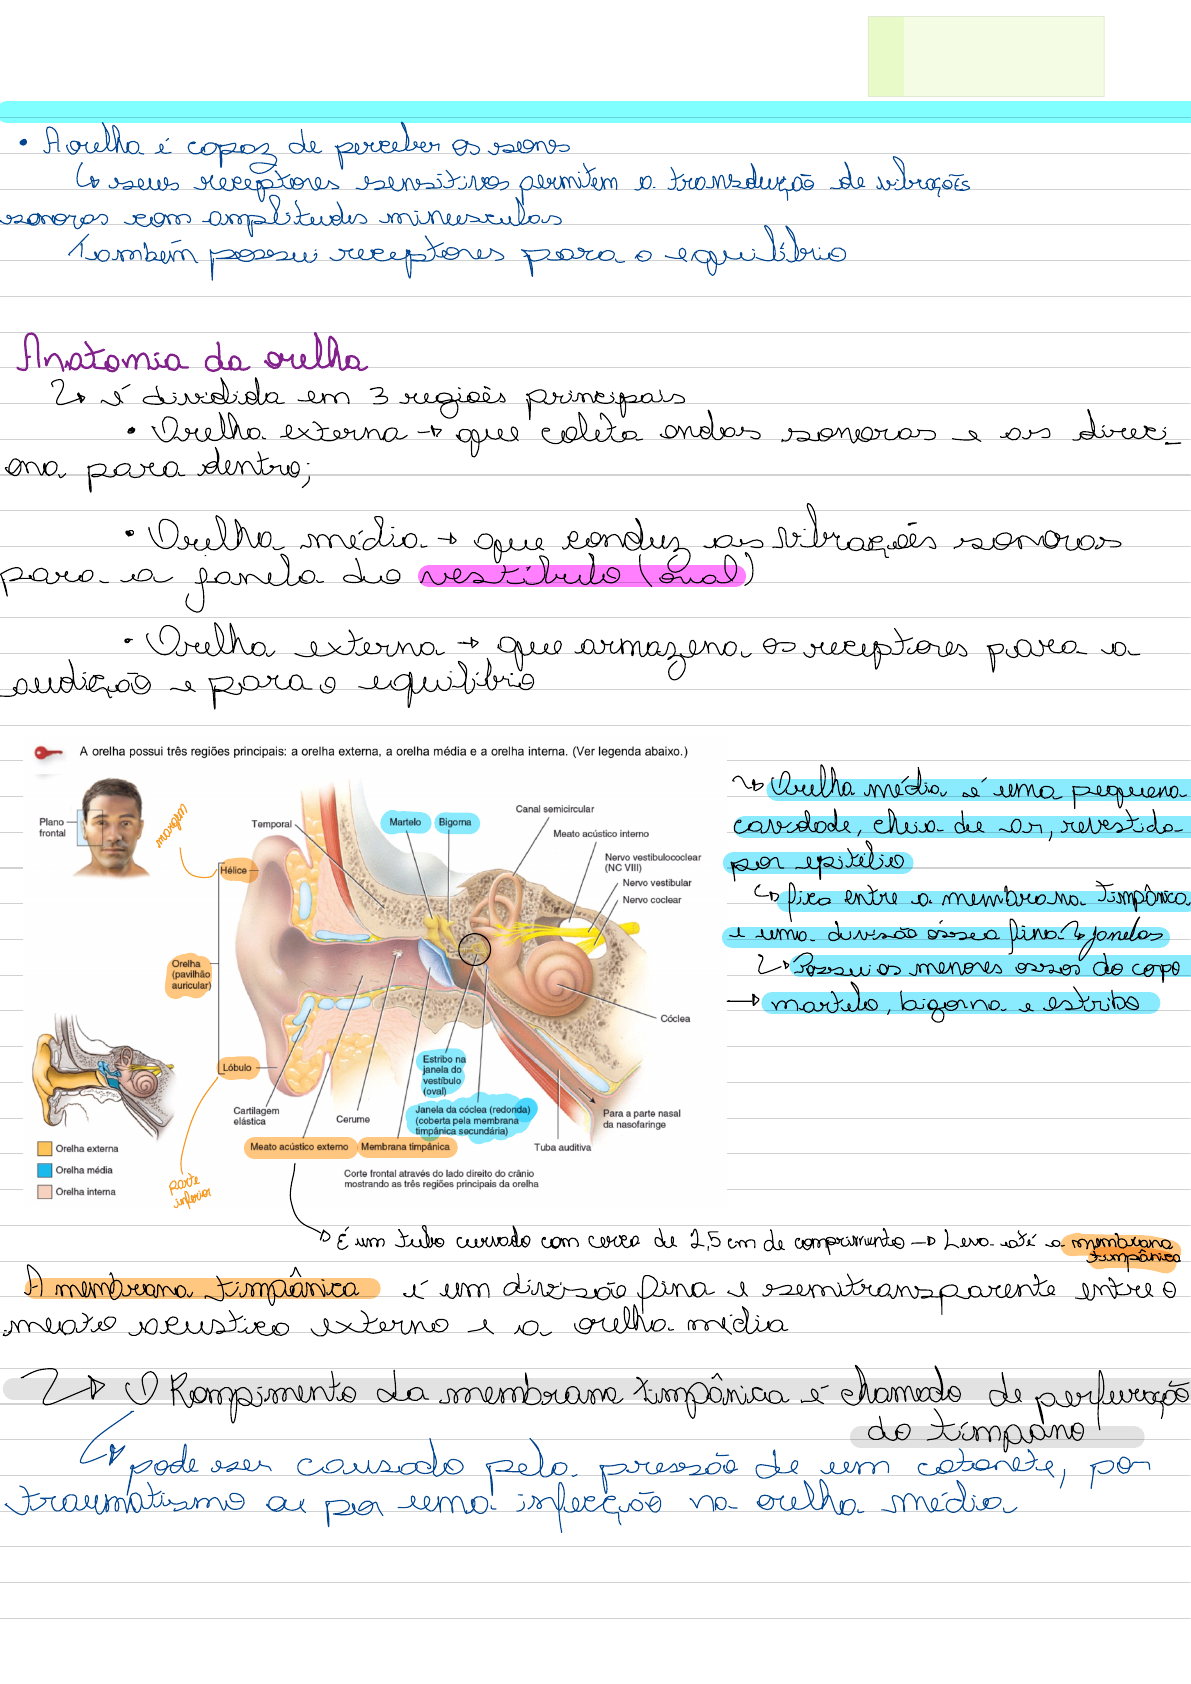 • A orelha é capaz de perceber os sons
↳ seus receptores sensitivos permitem a transdução de vibrações
sonoras com amplitudes minusculas
Também possui receptores para o equilíbrio
Anatomia da orelha
↳ é dividida em 3 regiões principais
• Orelha externa → que coleta ondas sonoras e as direci-
ona para dentro;
• Orelha média → que conduz as vibrações sonoras
para a janela do vestíbulo (oval)
• Orelha externa → que armazena os receptores para a
audição e para o equilíbrio
A orelha possui três regiões principais: a orelha externa, a orelha média e a orelha interna. (Ver legenda abaixo.)
Plano
frontal
margem
Temporal
Martelo
Bigorna
Canal semicircular
Meato acústico interno
Nervo vestibulococlear
(NC VIII)
Nervo vestibular
Nervo coclear
Hélice
Orelha
(pavilhão
auricular)
Lóbulo
Cóclea
Estribo na
janela do
vestíbulo
(oval)
Janela da cóclea (redonda)
(coberta pela membrana
timpânica secundária)
Cartilagem
elástica
Cerume
Para a parte nasal
da nasofaringe
Meato acústico externo
Membrana timpânica
Tuba auditiva
Orelha externa
Orelha média
Orelha interna
parte
inferior
Corte frontal através do lado direito do crânio
mostrando as três regiões principais da orelha
↳ Orelha média é uma pequena
cavidade, cheia de ar, revestida
por epitélio
↳ fica entre a membrana timpânica
e uma divisão óssea fina ↳ janelas
↳ Possui os menores ossos do copo
→ martelo, bigorna e estribo
↳ É um tubo curvado com cerca de 2,5 cm de comprimento → Leva até a membrana
timpânica
A membrana timpânica é um divisão fina e semitransparente entre o
meato acustico externo e a orelha média
↳ O Rompimento da membrana timpânica é chamado de perfuração
do tímpano
↳ pode ser causado pela pressão de um cotonete, por
traumatismo ou por uma infecção na orelha média